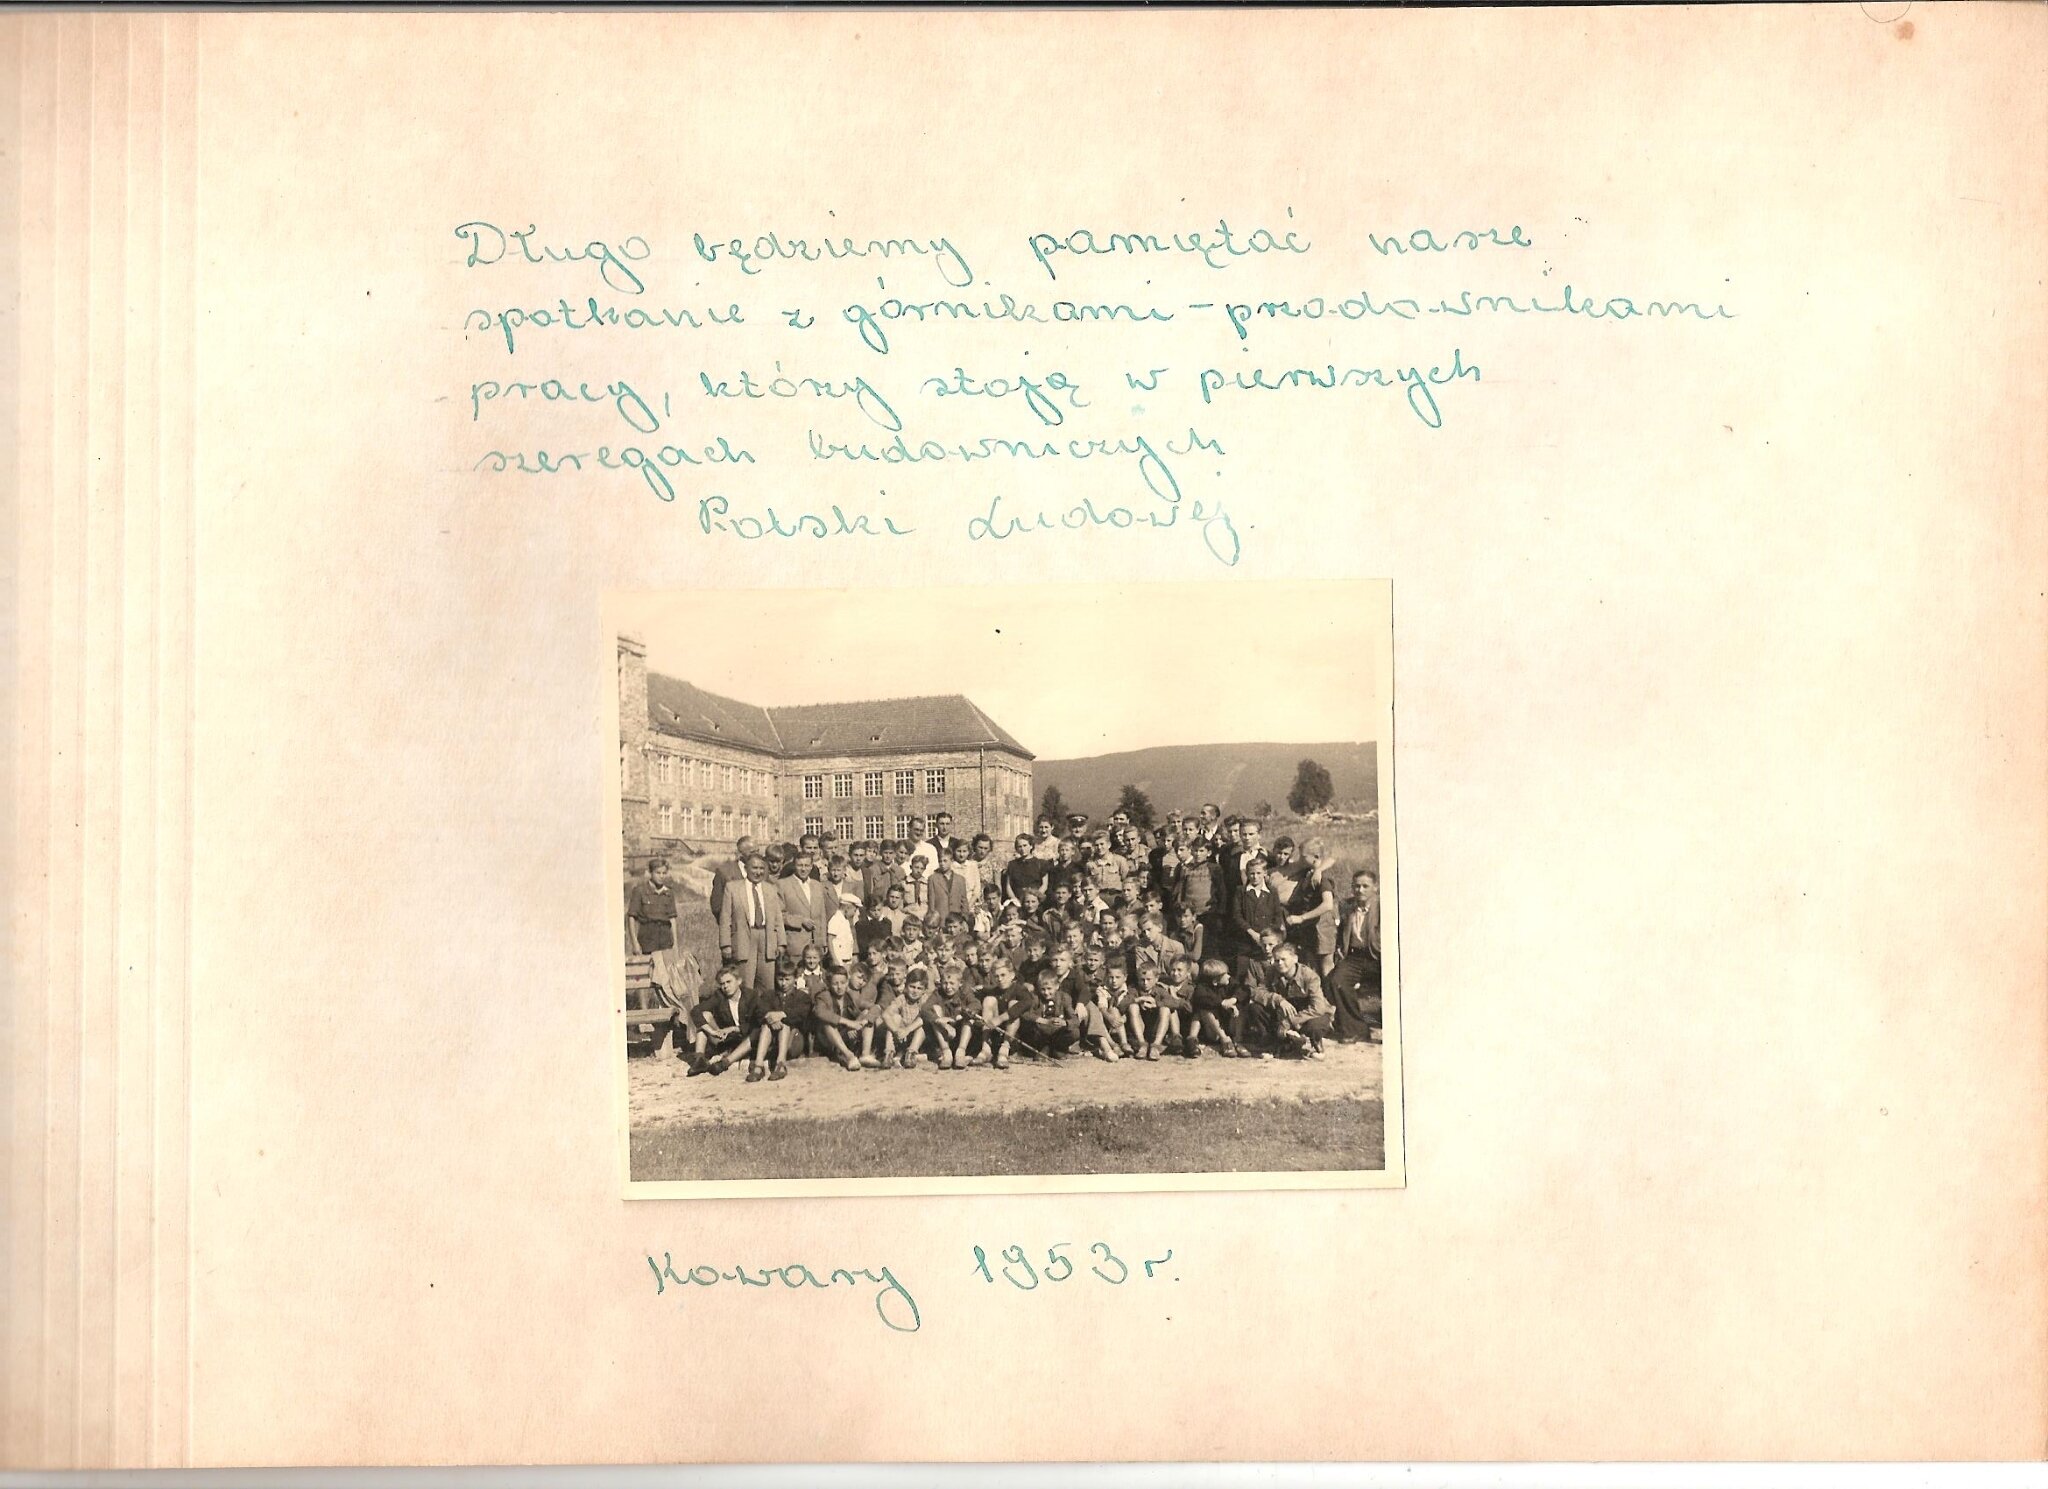 Długo będziemy pamiętać nasze
spotkanie z górnikami - przodownikami
pracy, którzy stoją w pierwszych
szeregach budowniczych
Polski Ludowej.
Kowary 1953 r.